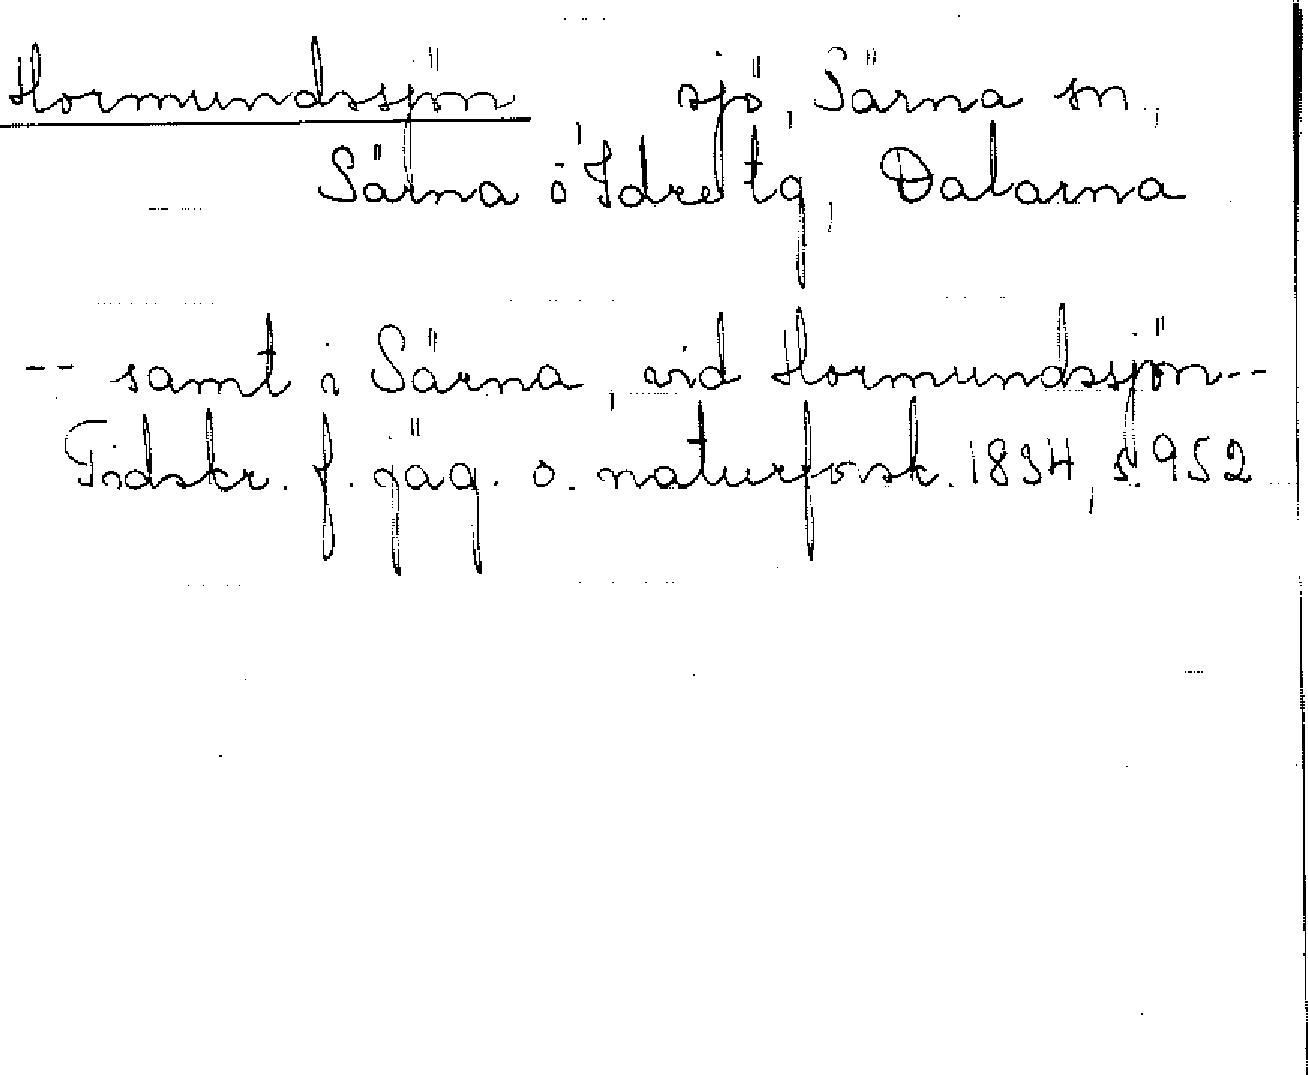 Hormundssjön sjö, Särna sn.,
Särna ö Idre tg, Dalarna
-- samt i Särna, vid Hormundssjön--
Tidskr. f. jäg. o. naturforsk. 1834, s. 952